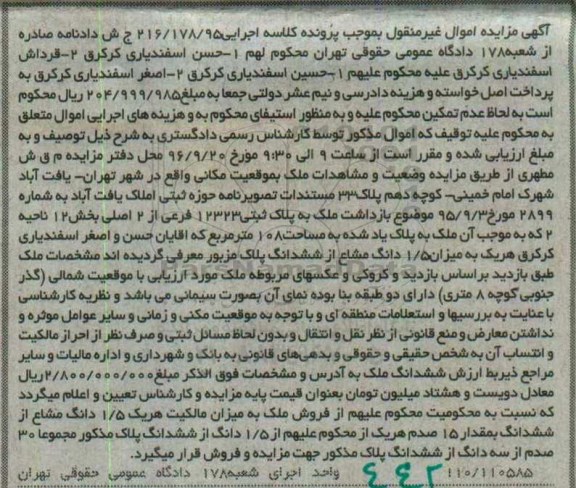 آگهی مزایده اموال غیرمنقول بموجب پرونده کلاسه اجرایی۲۱۶/۱۷۸/۹۵ ج ش دادنامه صادره
از شعبه۱۷۸ دادگاه عمومی حقوقی تهران محکوم لهم ۱-حسن اسفندیاری کرکرق ۲-قرداش
اسفندیاری کرکرق علیه محکوم علیهم ۱-حسین اسفندیاری کرکرق ۲-اصغر اسفندیاری کرکرق به
پرداخت اصل خواسته و هزینه دادرسی و نیم عشر دولتی جمعا به مبلغ۲۰۴/۹۹۹/۹۸۵ ریال محکوم
است به لحاظ عدم تمکین محکوم علیه و به منظور استیفای محکوم به و هزینه های اجرایی اموال متعلق
به محکوم علیه توقیف که اموال مذکور توسط کارشناس رسمی دادگستری به شرح ذیل توصیف و به
مبلغ ارزیابی شده و مقرر است از ساعت ۹ الی ۹:۳۰ مورخ ۹۶/۹/۲۰ محل دفتر مزایده م ق ش
مطهری از طریق مزایده وضعیت و مشاهدات ملک بموقعیت مکانی واقع در شهر تهران- یافت آباد
شهرک امام خمینی- کوچه دهم پلاک۳۳ مستندات تصویرنامه حوزه ثبتی املاک یافت آباد به شماره
۲۸۹۹ مورخ۹۵/۹/۳ موضوع بازداشت ملک به پلاک ثبتی۱۲۳۲۳ فرعی از ۲ اصلی بخش۱۲ ناحیه
۲ که به موجب آن ملک به پلاک یاد شده به مساحت۱۰۸ مترمربع که اقایان حسن و اصغر اسفندیاری
کرکرق هریک به میزان۱/۵ دانگ مشاع از ششدانگ پلاک مزبور معرفی گردیده اند مشخصات ملک
طبق بازدید براساس بازدید و کروکی و عکسهای مربوطه ملک مورد ارزیابی با موقعیت شمالی (گذر
جنوبی کوچه ۸ متری) دارای دو طبقه بنا بوده نمای آن بصورت سیمانی می باشد و نظریه کارشناسی
با عنایت به بررسیها و استعلامات منطقه ای و با توجه به موقعیت مکنی و زمانی و سایر عوامل موثره و
نداشتن معارض و منع قانونی از نظر نقل و انتقال و بدون لحاظ مسائل ثبتی و صرف نظر از احراز مالکیت
و انتساب آن به شخص حقیقی و حقوقی و بدهی‌های قانونی به بانک و شهرداری و اداره مالیات و سایر
مراجع ذیربط ارزش ششدانگ ملک به آدرس و مشخصات فوق الذکر مبلغ۲/۸۰۰/۰۰۰/۰۰۰ریال
معادل دویست و هشتاد میلیون تومان بعنوان قیمت پایه مزایده و کارشناس تعیین و اعلام میگردد
که نسبت به محکومیت محکوم علیهم از فروش ملک به میزان مالکیت هریک ۱/۵ دانگ مشاع از
ششدانگ بمقدار۱۵ صدم هریک از محکوم علیهم از۱/۵ دانگ از ششدانگ پلاک مذکور مجموعا ۳۰
صدم از سه دانگ از ششدانگ پلاک مذکور جهت مزایده و فروش قرار میگیرد.
۱۱۰/۱۱۰۵۸۵ ۴۴۲ واحد اجرای شعبه۱۷۸ دادگاه عمومی حقوقی تهران